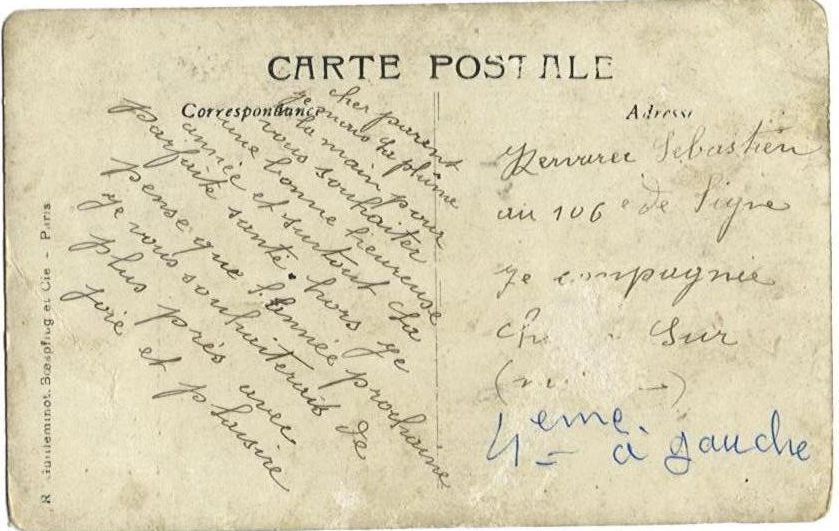 CARTE POSTALE
Correspondance
Adresse
cher parent
je mens la plume
la main pour
vous souhaiter
une bonne heureuse
année et surtout la
parfaite santé. hors je
pense que l'année prochaine
je vous souhaiterais de
plus près avec
joie et plaisire
Kervarec Sebastien
au 106e de ligne
7e compagnie
Sur
4 eme à gauche
R. Guilleminot, Bœspflug et Cie - Paris